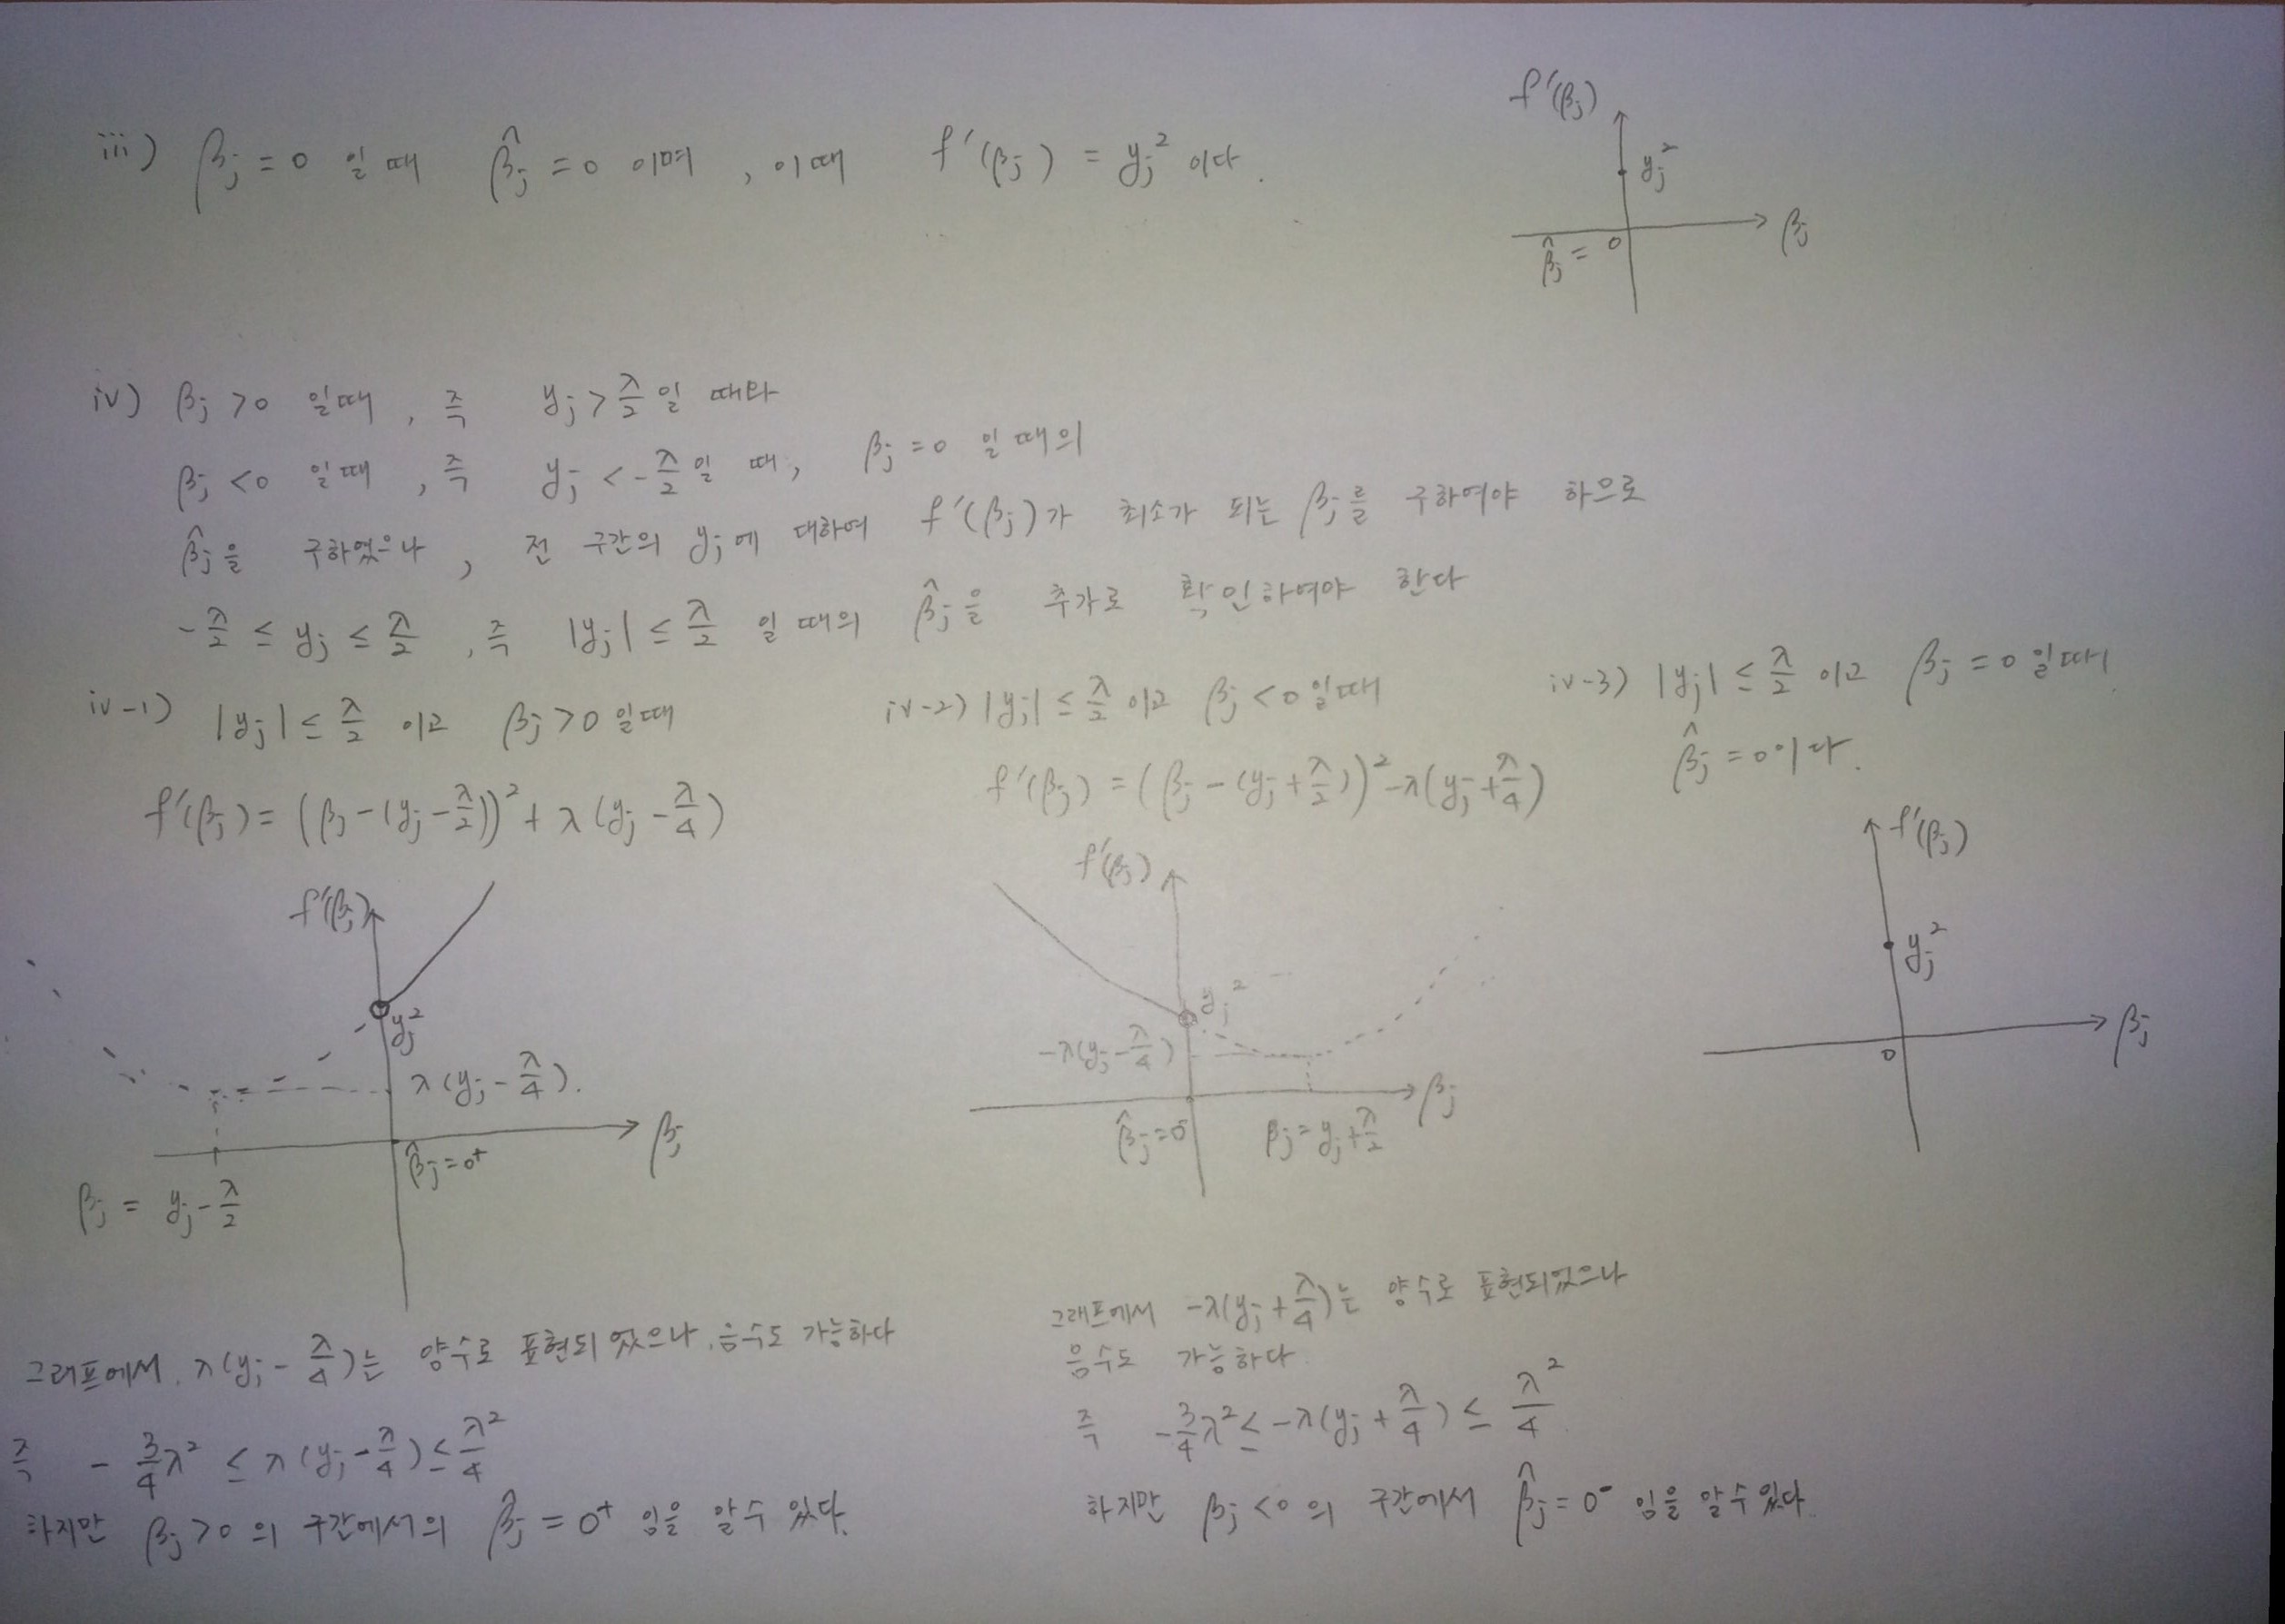 iii) β_j = 0 일 때 β̂_j = 0 이며, 이때 f'(β_j) = y_j² 이다.
f'(β_j)
y_j²
β_j
β̂_j = 0
iv) β_j > 0 일때, 즉 y_j > λ/2 일 때와
β_j < 0 일때, 즉 y_j < -λ/2 일 때, β_j = 0 일 때의
β̂_j을 구하였으나, 전 구간의 y_j에 대하여 f'(β_j)가 최소가 되는 β_j를 구하여야 하으로
-λ/2 ≤ y_j ≤ λ/2, 즉 |y_j| ≤ λ/2 일 때의 β̂_j을 추가로 확인하여야 한다
iv-1) |y_j| ≤ λ/2 이고 β_j > 0 일때
f'(β_j) = (β_j - (y_j - λ/2))² + λ(y_j - λ/4)
f'(β_j)
y_j²
λ(y_j - λ/4).
β_j
β̂_j = 0⁺
β_j = y_j - λ/2
그래프에서. λ(y_j - λ/4)는 양수로 표현되었으나, 음수도 가능하다
즉 -3/4λ² ≤ λ(y_j - λ/4) ≤ λ²/4
하지만 β_j > 0 의 구간에서의 β̂_j = 0⁺ 임을 알수 있다.
iv-2) |y_j| ≤ λ/2 이고 β_j < 0 일때
f'(β_j) = (β_j - (y_j + λ/2))² - λ(y_j + λ/4)
f'(β_j)
y_j²
-λ(y_j - λ/4)
β_j
β̂_j = 0⁻
β_j = y_j + λ/2
그래프에서 -λ(y_j + λ/4)는 양수로 표현되었으나
음수도 가능하다
즉 -3/4λ² ≤ -λ(y_j + λ/4) ≤ λ²/4
하지만 β_j < 0 의 구간에서 β̂_j = 0⁻ 임을 알수 있다.
iv-3) |y_j| ≤ λ/2 이고 β_j = 0 일때
β̂_j = 0이다.
f'(β_j)
y_j²
β_j
0